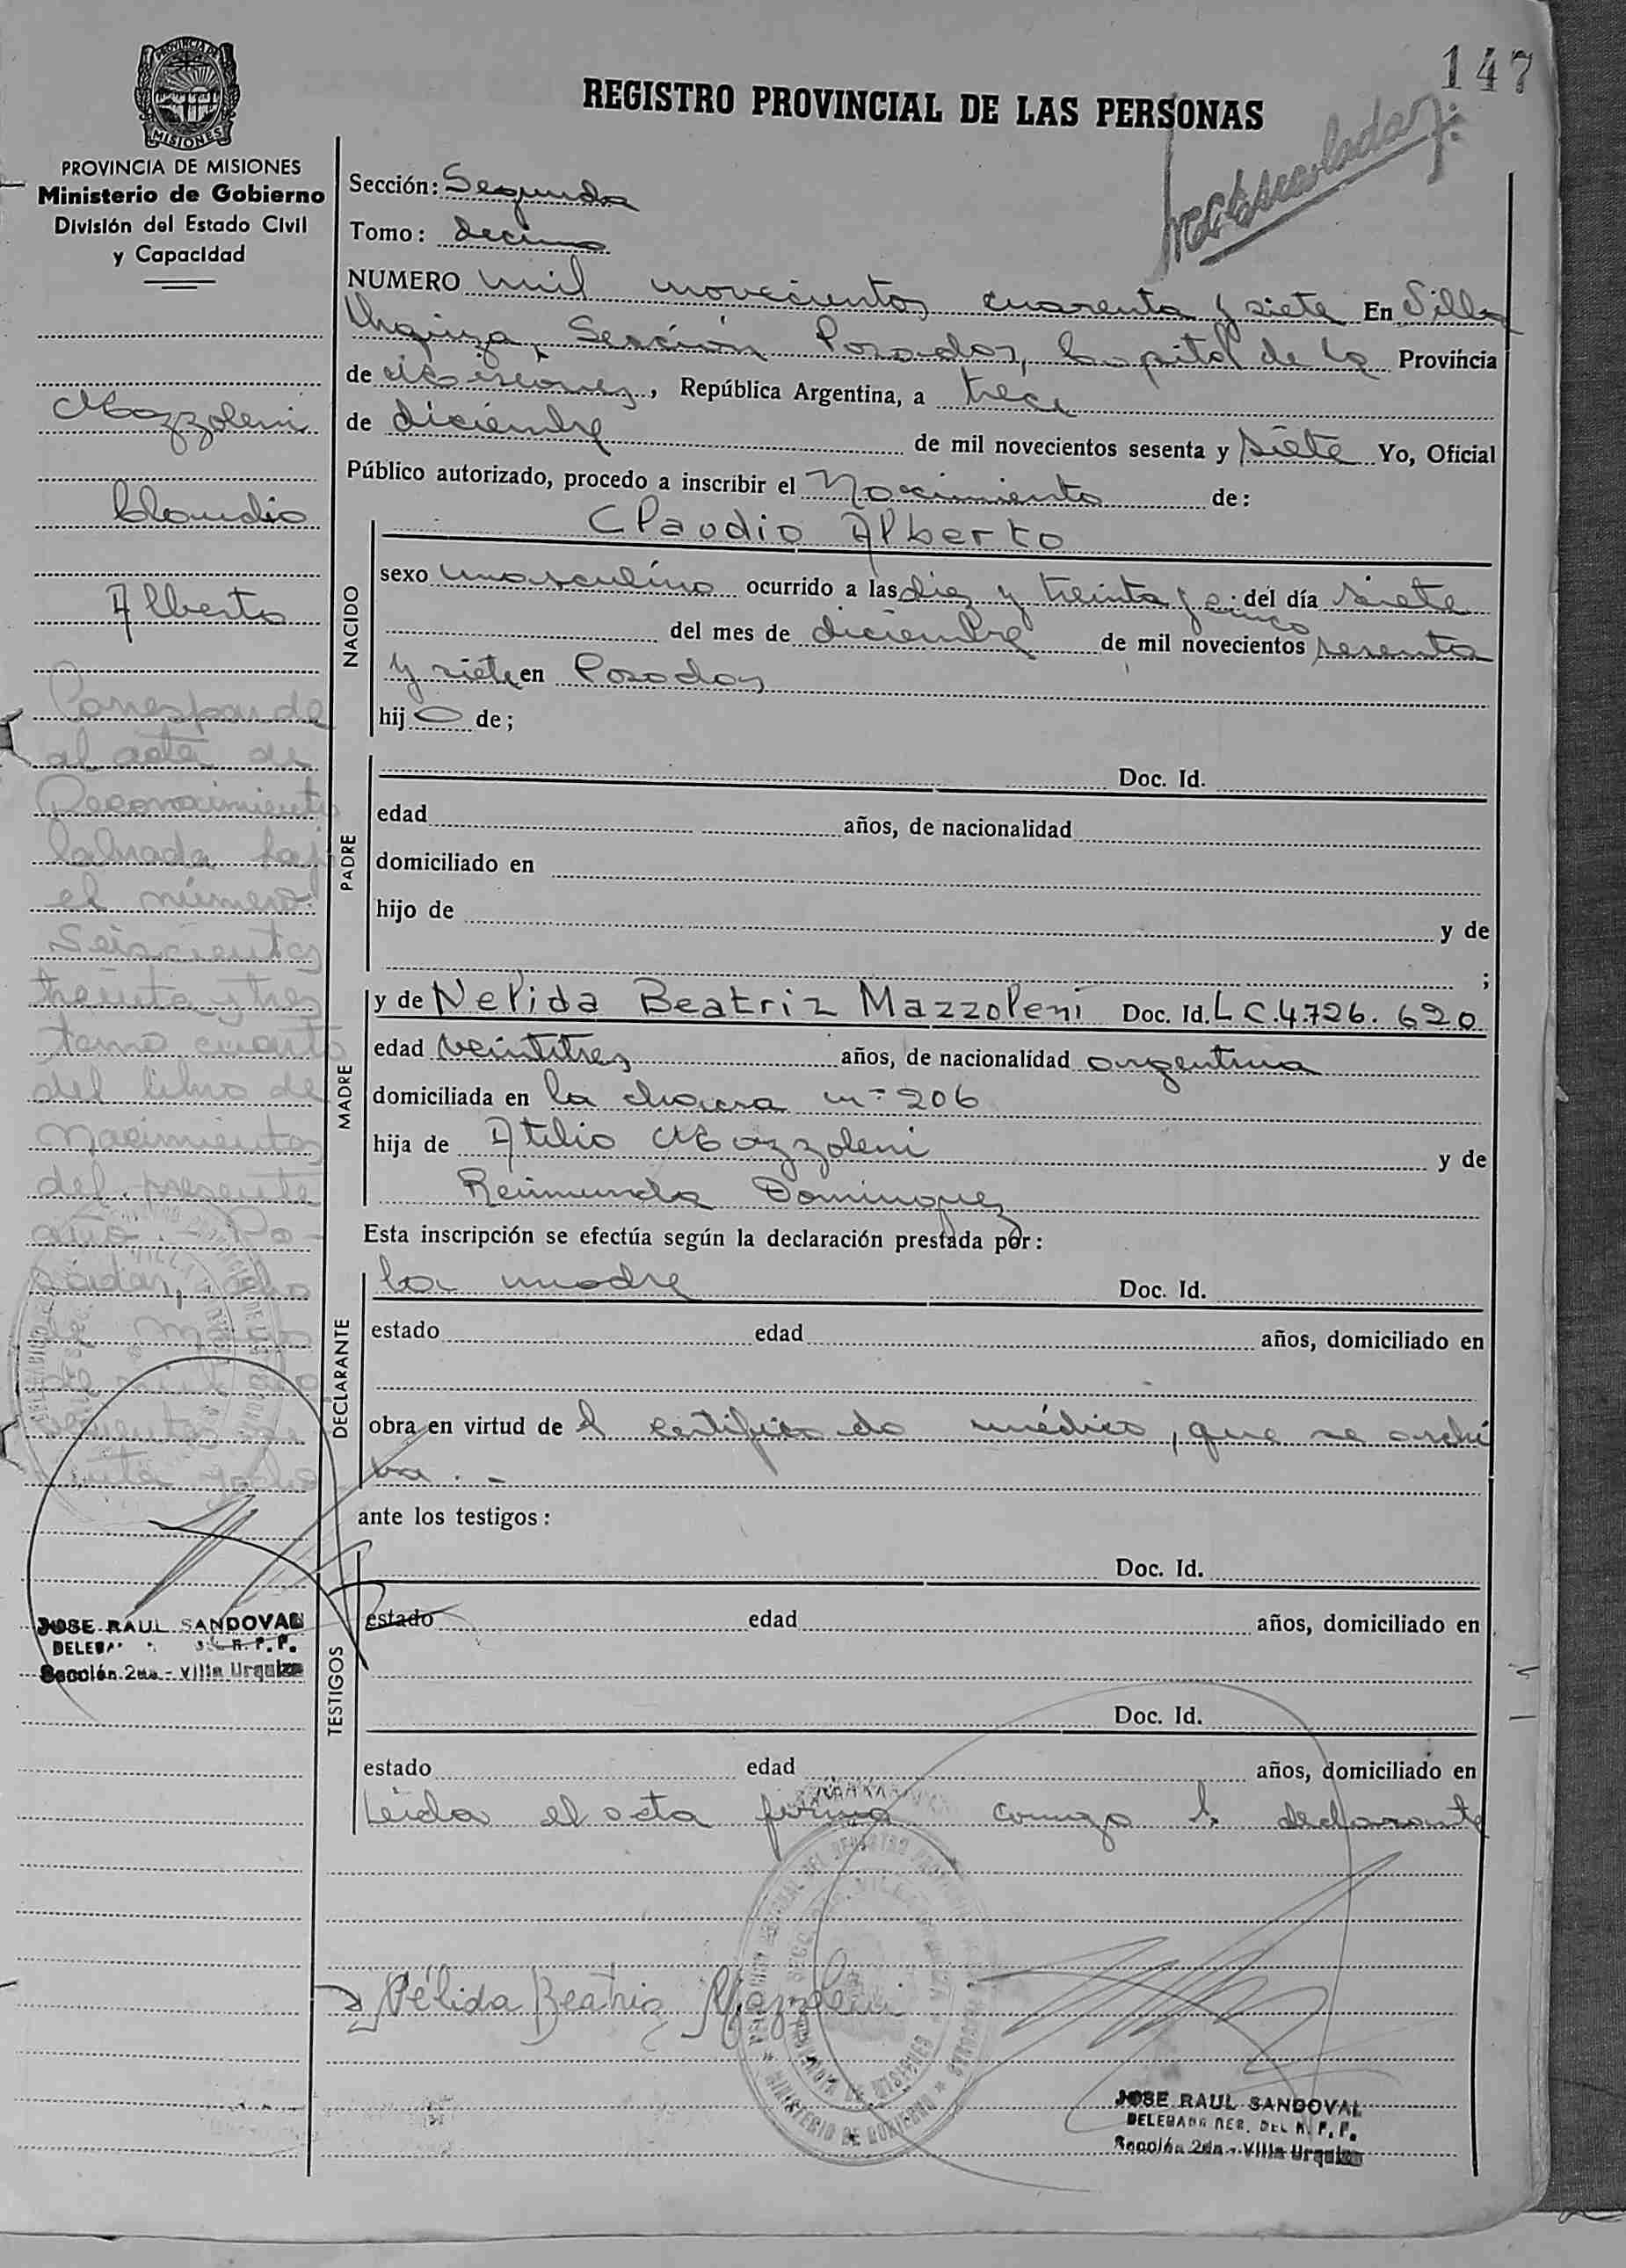 147
REGISTRO PROVINCIAL DE LAS PERSONAS
PROVINCIA DE
MISIONES
PROVINCIA DE MISIONES
Ministerio de Gobierno
División del Estado Civil
y Capacidad
Mazzoleni
Claudio
Alberto
Corresponde
al acta de
Reconocimiento
labrada bajo
el número
Seiscientos
treinta y tres
tomo cuarto
del libro de
Nacimientos
del presente
año. Po-
sadas, ocho
de mil no
vecientos se
senta y ocho
JOSE RAUL SANDOVAL
R. P. P.
Sección 2da - Villa Urquiza
Sección: Segunda
Tomo: decimo
NUMERO mil novecientos cuarenta y siete En Villa
Urquiza, Sección Posadas, Capital de la Provincia
de Misiones, República Argentina, a trece
de diciembre de mil novecientos sesenta y siete Yo, Oficial
Público autorizado, procedo a inscribir el Nacimiento de:
NACIDO
Claudio Alberto
sexo masculino ocurrido a las diez y treinta y cinco del día siete
del mes de diciembre de mil novecientos sesenta
y siete en Posadas
hijo de;
PADRE
Doc. Id.
edad años, de nacionalidad
domiciliado en
hijo de y de
;
MADRE
y de Nelida Beatriz Mazzoleni Doc. Id. L C.4.726.620
edad veintitres años, de nacionalidad argentina
domiciliada en la chacra nº 206
hija de Atilio Mazzoleni y de
Reimunda Dominguez
Esta inscripción se efectúa según la declaración prestada por:
DECLARANTE
la madre Doc. Id.
estado edad años, domiciliado en
obra en virtud de l certificado médico, que se archi
va. -
ante los testigos:
TESTIGOS
Doc. Id.
estado edad años, domiciliado en
Doc. Id.
estado edad años, domiciliado en
Leida el acta firma conmigo la declarante
Nélida Beatriz Mazzoleni
MINISTERIO DE GOBIERNO
PROVINCIA DE MISIONES
JOSE RAUL SANDOVAL
DELEGADO SEC. DEL R. P. P.
Sección 2da - Villa Urquiza